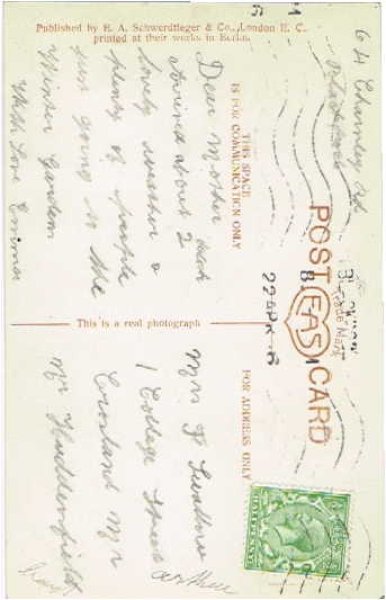 Published by E. A. Schwerdtfeger & Co., London E. C.
printed at their works in Berlin.
POST CARD
EAS
Trade Mark
THIS SPACE
IS FOR COMMUNICATION ONLY
FOR ADDRESS ONLY
64 Charnley Rd
Blackpool
Dear Mother
arrived about 2
lovely weather &
plenty of people
just going in the
Winter Gardens
With Love Emma
This is a real photograph
Mrs F Swallow
1 College Street
Crosland Mr
Nr Huddersfield